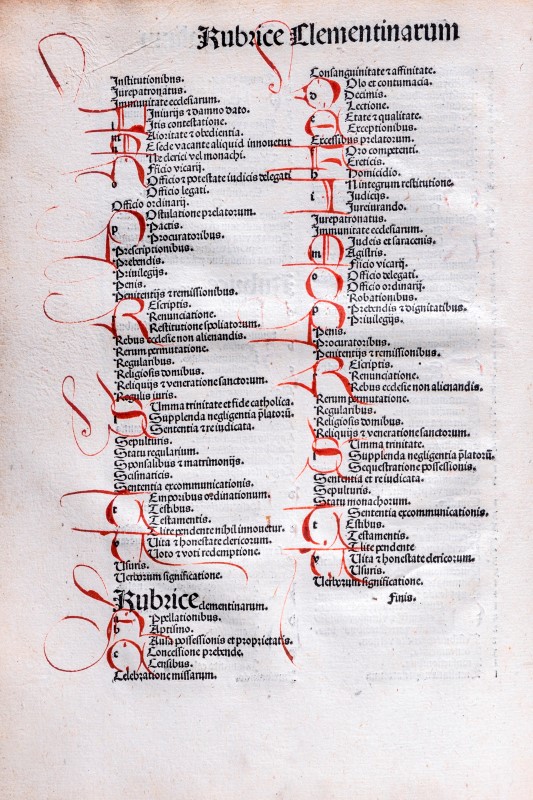 Rubrice Clementinarum
Institutionibus.
Jurepatronatus.
Immunitate ecclesiarum.
Iniurijs & damno dato.
l Itis contestatione.
m Aioritate & obedientia.
n E sede vacante aliquid innouetur
Ne clerici vel monachi.
Fficio vicarij.
o Officio et potestate iudicis delegati
Officio legati.
Officio ordinarij.
Ostulatione prelatorum.
p Pactis.
Procuratoribus.
Prescriptionibus.
Prebendis.
Priuilegijs.
Penis.
Penitentijs & remissionibus.
Escriptis.
Renunciatione.
Restitutione spoliatorum.
Rebus ecclesie non alienandis.
Rerum permutatione.
Regularibus.
Religiosis domibus.
Reliquijs & veneratione sanctorum.
Regulis iuris.
Umma trinitate et fide catholica.
s Supplenda negligentia p̄latorū.
Sententia et re iudicata.
Sepulturis.
Statu regularium.
Sponsalibus & matrimonijs.
Scismaticis.
Sententia excommunicationis.
Emporibus ordinationum.
t Testibus.
Testamentis.
Ut lite pendente nihil innouetur.
v Uita & honestate clericorum.
Uoto & voti redemptione.
Usuris.
Uerborum significatione.
Rubrice clementinarum.
a Ppellationibus.
b Aptismo.
Ausa possessionis et proprietatis.
c Concessione prebende.
Censibus.
Celebratione missarum.
Consanguinitate & affinitate.
Olo et contumacia.
d Decimis.
Lectione.
e Etate & qualitate.
Exceptionibus.
Excessibus prelatorum.
f Oro competenti.
Ereticis.
h Homicidio.
N integrum restitutione.
i Iudicijs.
Iureiurando.
Jurepatronatus.
Immunitate ecclesiarum.
Iudeis et saracenis.
m Agistris.
Fficio vicarij.
o Officio delegati.
Officio ordinarij.
Robationibus.
p Prebendis & dignitatibus.
Priuilegijs.
Penis.
Procuratoribus.
Penitentijs & remissionibus.
Escriptis.
Renunciatione.
Rebus ecclesie non alienandis.
Rerum permutatione.
Regularibus.
Religiosis domibus.
Reliquijs & veneratione sanctorum.
Umma trinitate.
s Supplenda negligentia p̄latorū.
Sequestratione possessionis.
Sententia et re iudicata.
Sepulturis.
Statu monachorum.
Sententia excommunicationis.
t Estibus.
Testamentis.
Ut lite pendente
v Uita & honestate clericorum.
Usuris.
Uerborum significatione.
Finis.